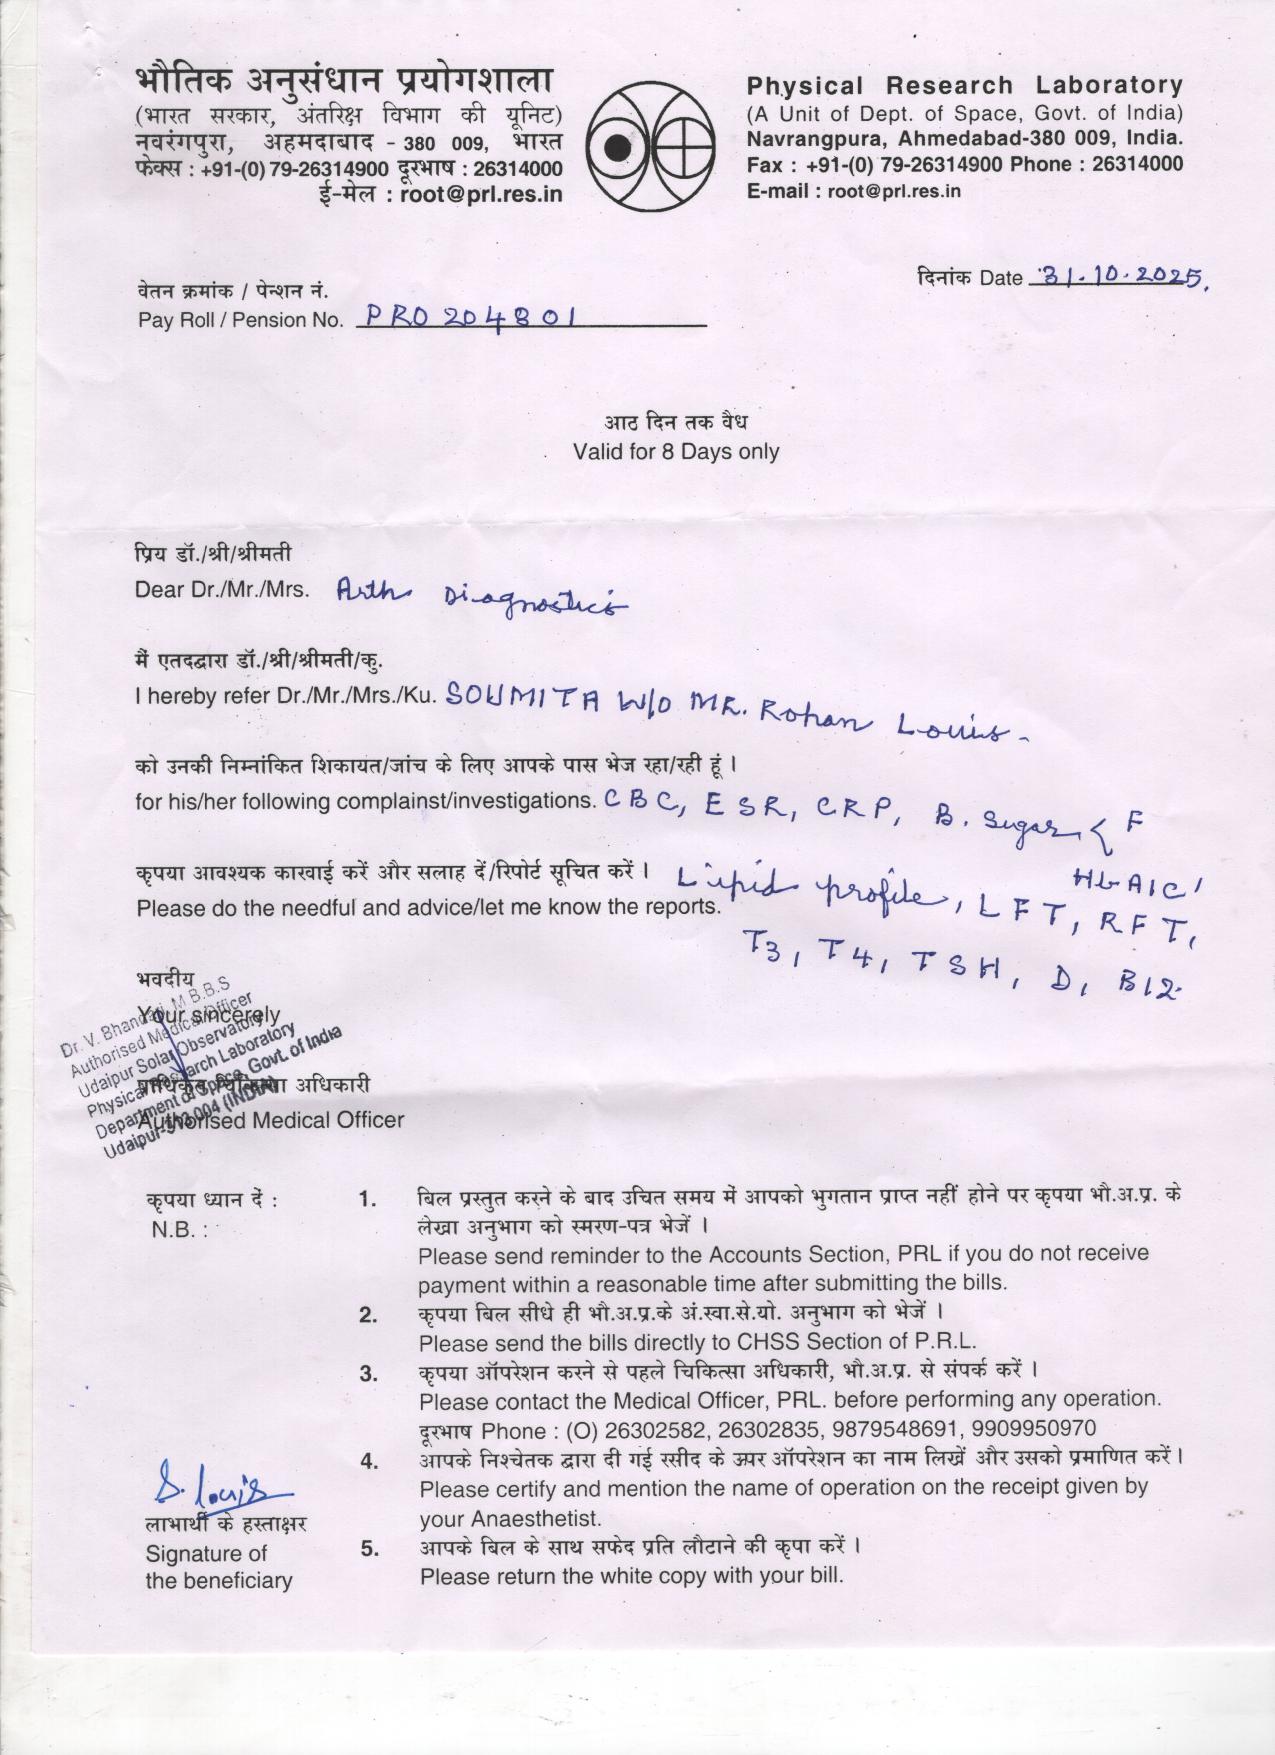 भौतिक अनुसंधान प्रयोगशाला
(भारत सरकार, अंतरिक्ष विभाग की यूनिट)
नवरंगपुरा, अहमदाबाद - 380 009, भारत
फेक्स : +91-(0) 79-26314900 दूरभाष : 26314000
ई-मेल : root@prl.res.in
Physical Research Laboratory
(A Unit of Dept. of Space, Govt. of India)
Navrangpura, Ahmedabad-380 009, India.
Fax : +91-(0) 79-26314900 Phone : 26314000
E-mail : root@prl.res.in
दिनांक Date 31.10.2025.
वेतन क्रमांक / पेन्शन नं.
Pay Roll / Pension No. PRO 204801
आठ दिन तक वैध
Valid for 8 Days only
प्रिय डॉ./श्री/श्रीमती
Dear Dr./Mr./Mrs. Arth Diagnostics
मैं एतदद्वारा डॉ./श्री/श्रीमती/कु.
I hereby refer Dr./Mr./Mrs./Ku. SOUMITA W/O MR. Rohan Louis -
को उनकी निम्नांकित शिकायत/जांच के लिए आपके पास भेज रहा/रही हूं ।
for his/her following complainst/investigations. CBC, ESR, CRP, B. Sugar, { F
HbA1C,
कृपया आवश्यक कारवाई करें और सलाह दें/रिपोर्ट सूचित करें । Lipid profile, LFT, RFT,
Please do the needful and advice/let me know the reports.
T3, T4, TSH, D, B12.
भवदीय
Your sincerely
Dr. V. Bhandari, M.B.B.S
Authorised Medical Officer
Udaipur Solar Observatory
Physical Research Laboratory
Department of Space, Govt. of India
Udaipur-313 004 (INDIA)
प्राधिकृत चिकित्सा अधिकारी
Authorised Medical Officer
कृपया ध्यान दें :
N.B. :
1. बिल प्रस्तुत करने के बाद उचित समय में आपको भुगतान प्राप्त नहीं होने पर कृपया भौ.अ.प्र. के
लेखा अनुभाग को स्मरण-पत्र भेजें ।
Please send reminder to the Accounts Section, PRL if you do not receive
payment within a reasonable time after submitting the bills.
2. कृपया बिल सीधे ही भौ.अ.प्र.के अं.स्वा.से.यो. अनुभाग को भेजें ।
Please send the bills directly to CHSS Section of P.R.L.
3. कृपया ऑपरेशन करने से पहले चिकित्सा अधिकारी, भौ.अ.प्र. से संपर्क करें ।
Please contact the Medical Officer, PRL. before performing any operation.
दूरभाष Phone : (O) 26302582, 26302835, 9879548691, 9909950970
4. आपके निश्चेतक द्वारा दी गई रसीद के ऊपर ऑपरेशन का नाम लिखें और उसको प्रमाणित करें ।
Please certify and mention the name of operation on the receipt given by
your Anaesthetist.
5. आपके बिल के साथ सफेद प्रति लौटाने की कृपा करें ।
Please return the white copy with your bill.
S. Louis
लाभार्थी के हस्ताक्षर
Signature of
the beneficiary